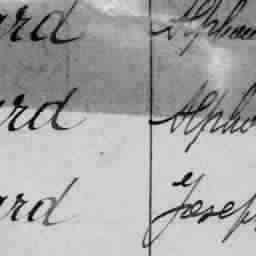 ard Alphon
ard Alpho
ard Josep